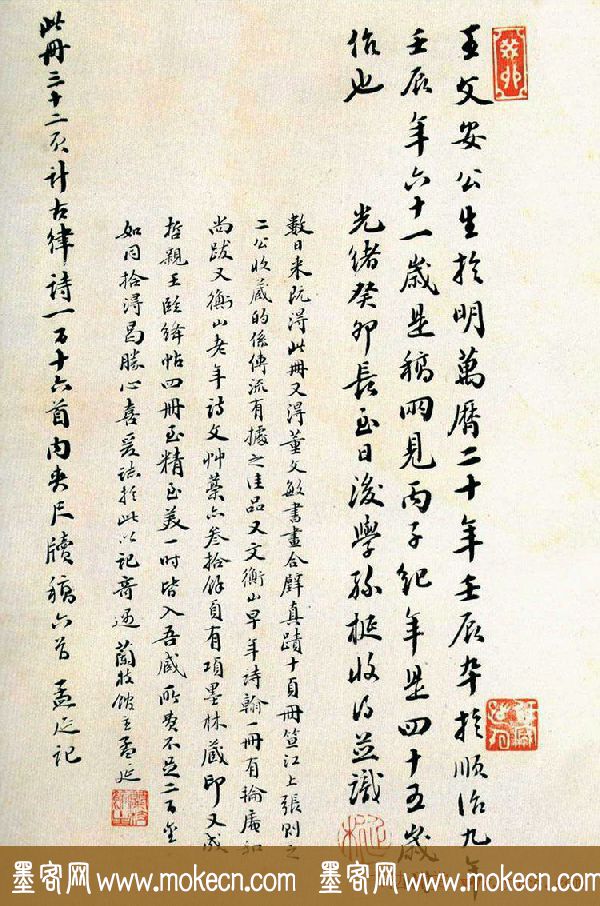 王文安公生於明萬曆二十年壬辰卒於順治九年
壬辰年六十一歲是稿兩見丙子紀年是四十五歲
作也
光緒癸卯長至日後學孫梃收得並識
數日來既得此冊又得董文敏書畫合璧真蹟十頁冊笪江上張則之
二公收藏的係傳流有據之佳品又文衡山早年詩翰一冊有
尚跋又衡山老年詩文艸藁亦叁拾餘頁有項墨林藏印又成
哲親王臨絳帖四冊至精至美一時皆入吾藏所費不足二百金
如同拾得曷勝心喜爰誌於此以記奇遇 蘭枝館主孟延
此冊三十二頁計古律詩一百十六首內夾尺牘稿六首 孟延記
墨客网 www.mokecn.com 墨客网 www.mokecn.com